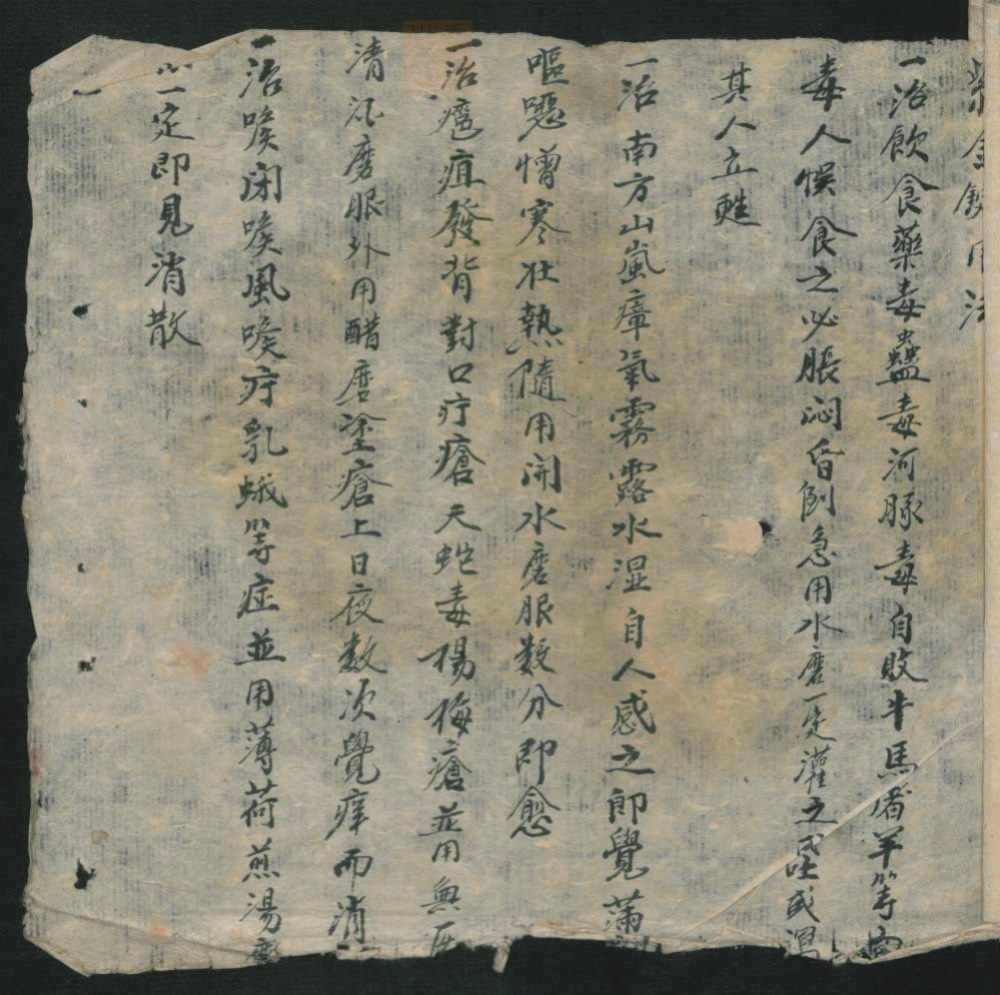 紫金錠用法
一治飲食藥毒蠱毒河豚毒自敗牛馬猪羊等肉
毒人悮食之必脹悶昏倒急用水磨一定灌之或吐或瀉
其人立甦
一治南方山嵐瘴氣霧露水湿自人感之即覺滿
嘔噁憎寒壯熱隨用開水磨服数分即愈
一治癰疽發背對口疔瘡天蛇毒楊梅瘡並用無灰
清酒磨服外用醋磨塗瘡上日夜数次覺痒而消
一治喉闭喉風喉疔乳蛾等症並用薄荷煎湯磨
一定即見消散